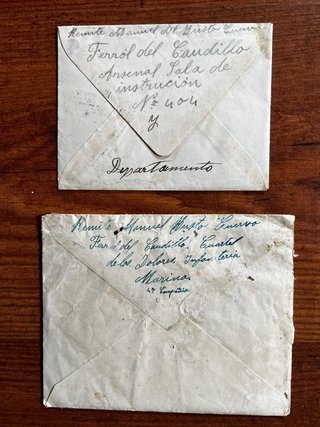 Remite Manuel del Busto Cuervo
Ferrol del Caudillo
Arsenal Sala de
instrución
Nº 404
y
Departamento
Remite Manuel Busto Cuervo
Ferrol del Caudillo, Cuartel
de los Dolores Infanteria
Marina
4ª Compañia